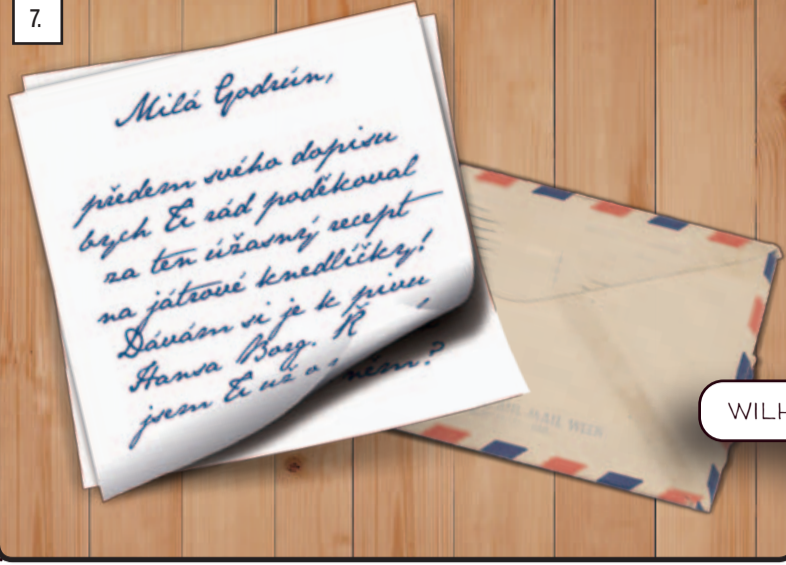 7.
Milá Godrún,
předem svého dopisu
bych Ti rád poděkoval
za ten úžasný recept
na játrové knedlíčky!
Dávám si je k pivu
Hansa Borg. Ř
jsem Ti už o něm?
MAIL WIEN
WILH